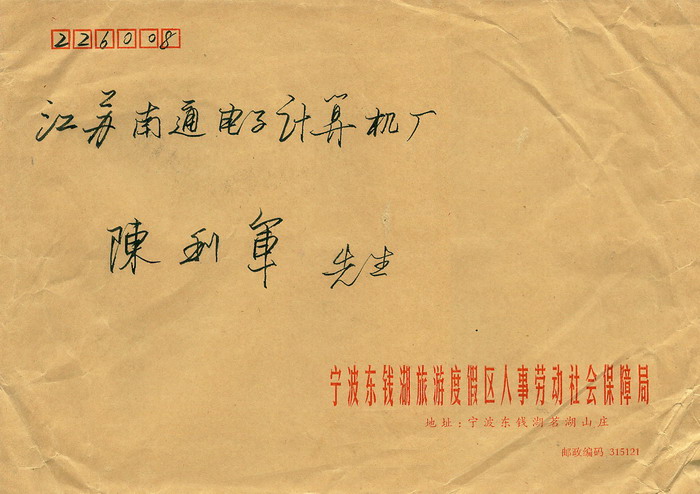 226008
江苏南通电子计算机厂
陳利軍 先生
宁波东钱湖旅游度假区人事劳动社会保障局
地址:宁波东钱湖茗湖山庄
邮政编码 315121